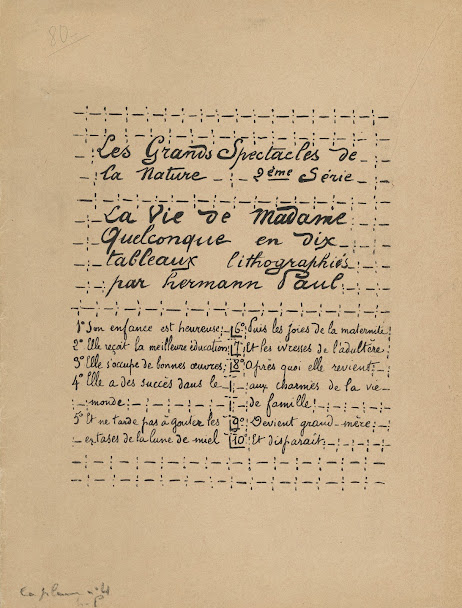 80-
Les Grands Spectacles de
la Nature 2ème Série
La Vie de Madame
Quelconque en dix
tableaux lithographiés
par hermann Paul
1° Son enfance est heureuse.
2° Elle reçoit la meilleure éducation
3° Elle s'occupe de bonnes œuvres.
4° Elle a des succès dans le
monde.
5° Et ne tarde pas à goûter les
extases de la lune de miel
6° Puis les joies de la maternité
7° Et les ivresses de l'adultère
8° Après quoi elle revient
aux charmes de la vie
de famille
9° Devient grand-mère
10° Et disparait.